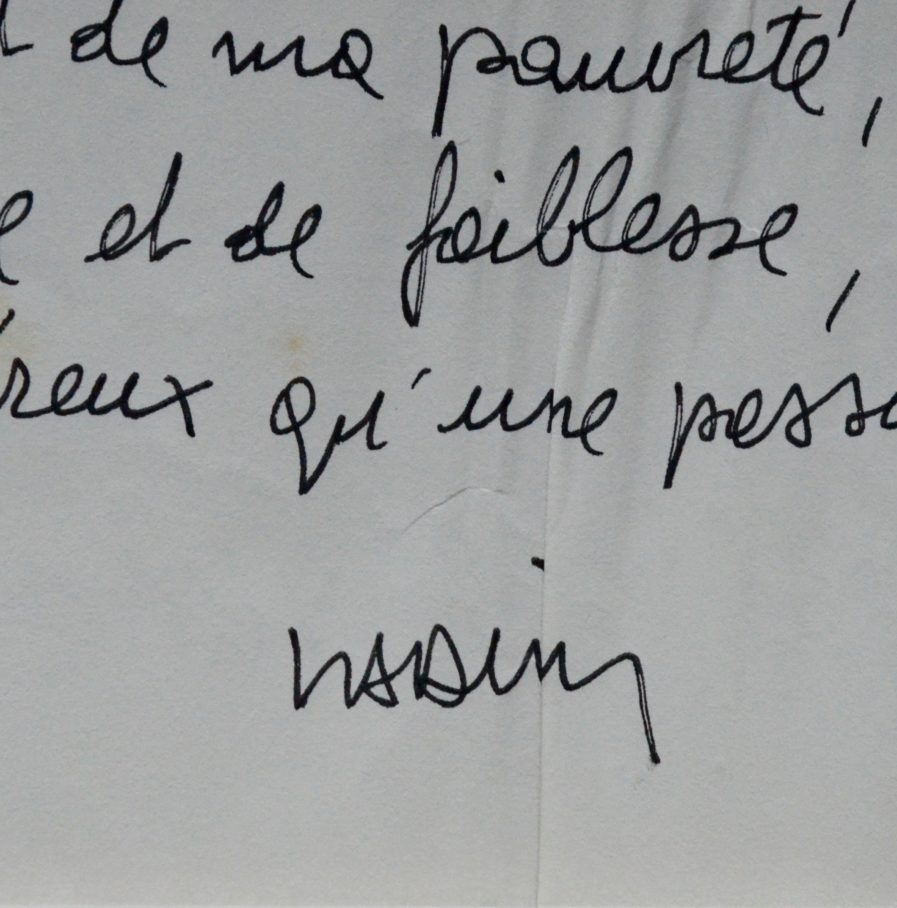 t de ma pauvreté,
e et de faiblesse,
reux qu'une passa
VADIM